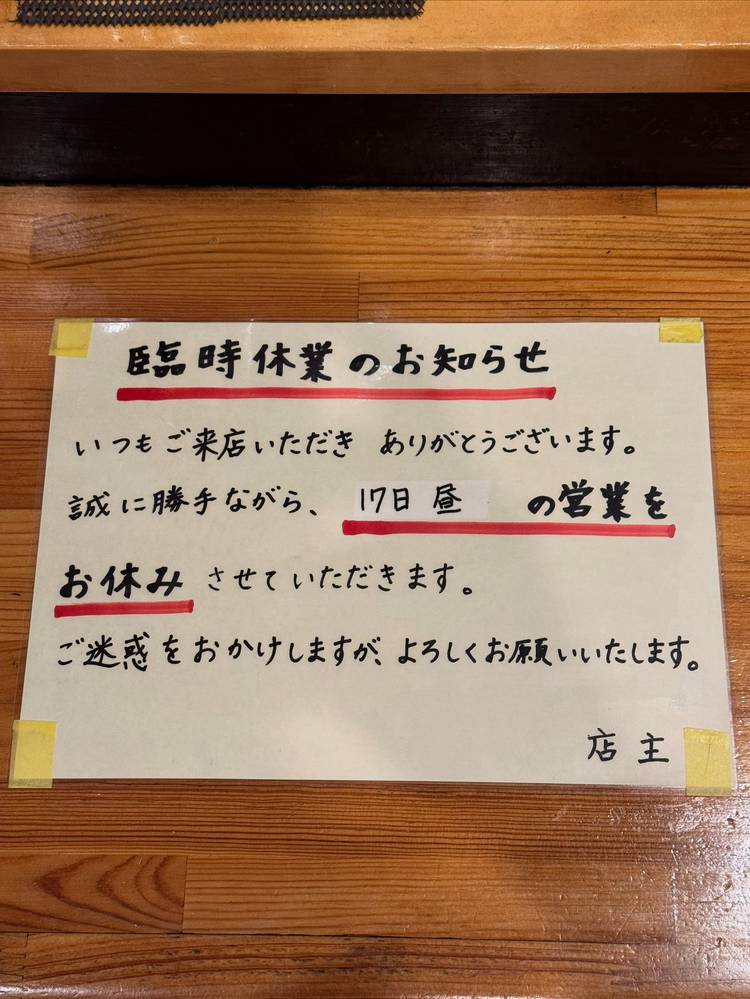 臨時休業のお知らせ
いつもご来店いただき ありがとうございます。
誠に勝手ながら、17日 昼 の営業を
お休みさせていただきます。
ご迷惑をおかけしますが、よろしくお願いいたします。
店主